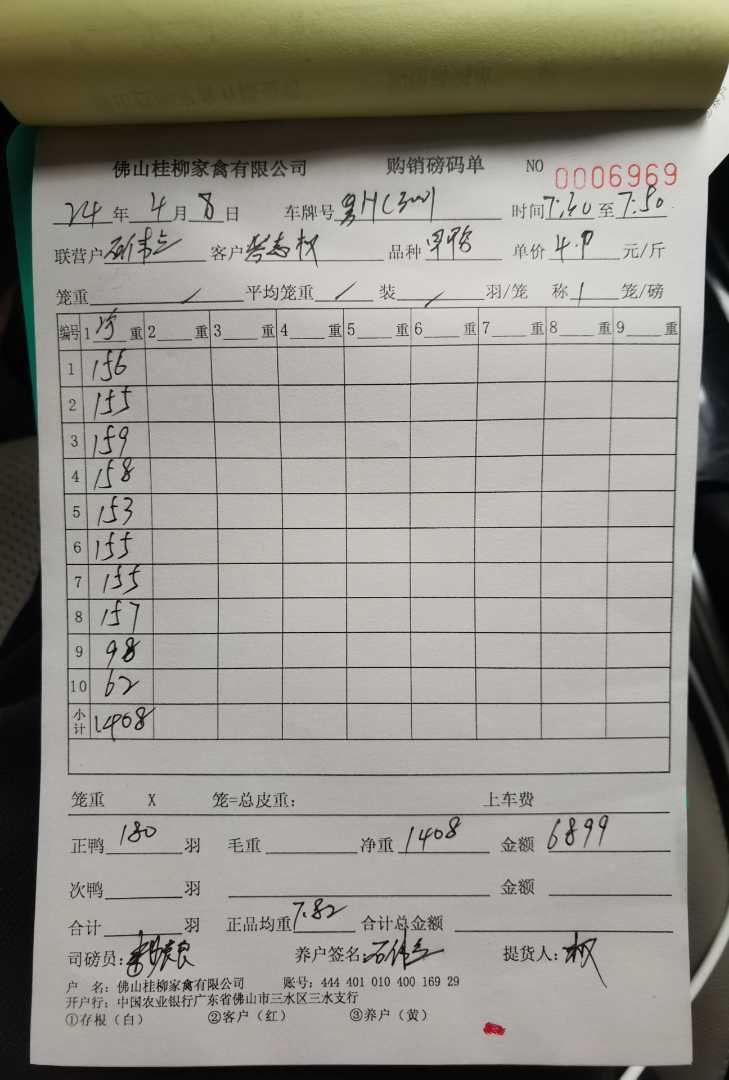 佛山桂柳家禽有限公司 购销磅码单 NO 0006969
24 年 4 月 8 日 车牌号 时间 7:30 至 7:50
联营户 石伟 客户 志权 品种 单价 4.9 元/斤
笼重 / 平均笼重 / 装 / 羽/笼 称 1 笼/磅
编号 1 净 重 2 重 3 重 4 重 5 重 6 重 7 重 8 重 9 重
1 156
2 155
3 159
4 158
5 153
6 155
7 155
8 157
9 98
10 62
小计 1408
笼重 X 笼=总皮重: 上车费
正鸭 180 羽 毛重 净重 1408 金额 6899
次鸭 羽 金额
合计 羽 正品均重 7.82 合计总金额
司磅员: 养户签名: 石伟 提货人: 权
户 名: 佛山桂柳家禽有限公司 账号: 444 401 010 400 169 29
开户行: 中国农业银行广东省佛山市三水区三水支行
①存根（白） ②客户（红） ③养户（黄）